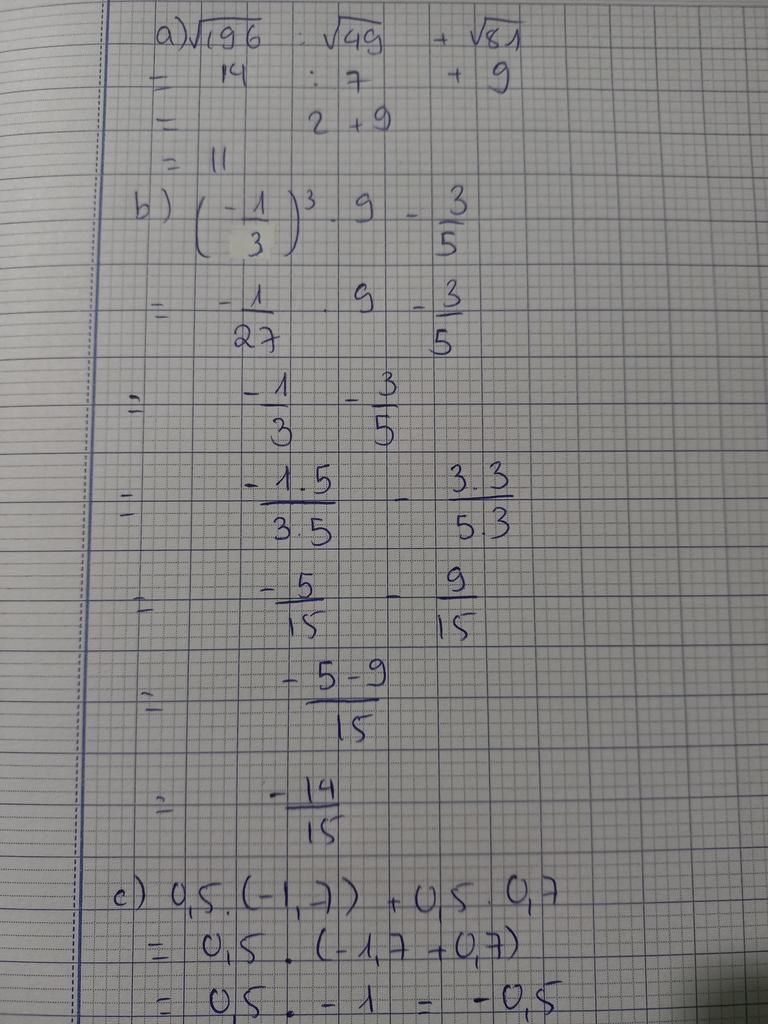 a) √196 : √49 + √81
= 14 : 7 + 9
= 2 + 9
= 11
b) (-1/3)³ . 9 - 3/5
= -1/27 . 9 - 3/5
= -1/3 - 3/5
= -1.5/3.5 - 3.3/5.3
= -5/15 - 9/15
= -5-9/15
= -14/15
c) 0,5.(-1,7) + 0,5.0,7
= 0,5 . (-1,7 +0,7)
= 0,5 . -1 = -0,5